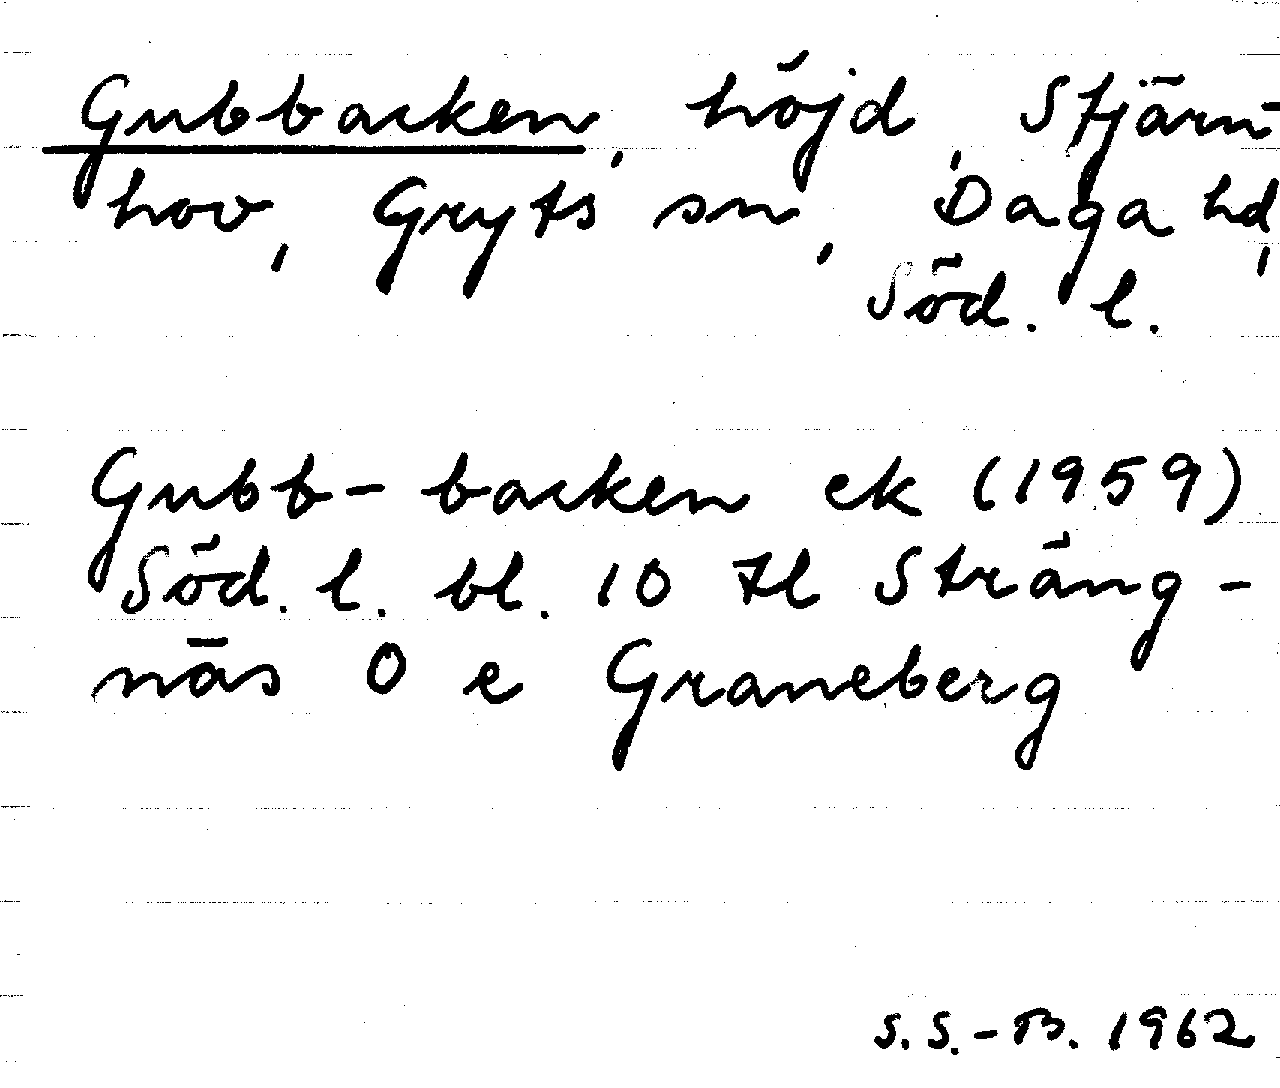 Gubbacken, höjd, Stjärn-
hov, Gryts sn, Daga hd,
Söd. l.
Gubb-backen ek (1959)
Söd. l. bl. 10 tl Sträng-
näs O e Graneberg
S.S.-B. 1962